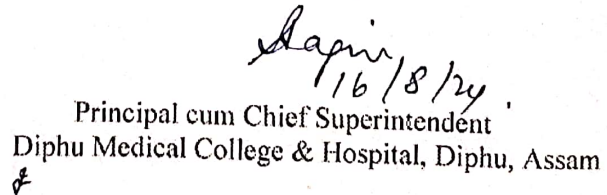 16/8/24
Principal cum Chief Superintendent
Diphu Medical College & Hospital, Diphu, Assam